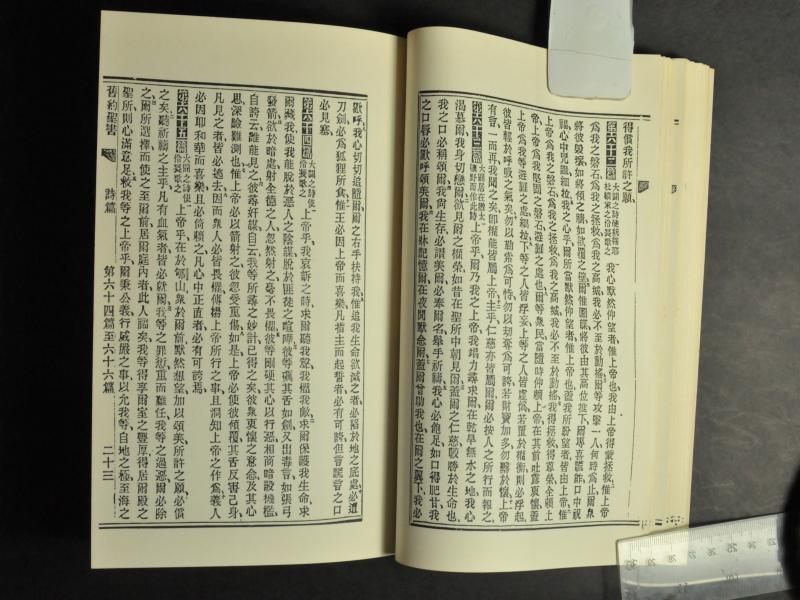 得償我所許之願
第六十二篇 大闢之詩使耶杜頓家之伶長歌之 我心默然仰望者惟上帝也我由上帝得蒙拯救惟上帝
為我之磐石為我之拯救為我之高城我必不至於動搖爾等攻擊一人何時為止爾衆
將彼毀壞如將傾之牆如欲圮之壁爾惟圖謀將彼由其高位推下爾專喜謊詐口中祝
福心中咒詛細拉我之心乎爾所當默然仰望者惟上帝也蓋我所盼望者皆由上帝惟
上帝為我之磐石為我之拯救為我之高城我必不至於動搖我得拯救得尊榮全賴上
帝上帝為我堅固之磐石避難之處也爾等衆民當隨時仰賴上帝在其前吐露衷懷蓋
上帝為我等避難之處細拉下等之人皆浮妄上等之人皆虛偽若置於權衡則必浮起
彼皆輕於呼吸之氣矣勿以勒索為可恃勿以刼奪為可誇若爾寶加多勿繫於懷上帝
有言一而再我聞之矣即權能皆屬上帝主乎仁慈亦皆屬爾爾必按人之所行而報之
第六十三篇 大闢居在猶太曠野而作此詩 上帝乎爾乃我之上帝我竭力尋求爾在乾旱無水之地我心
渴慕爾我身切戀爾欲見爾之權榮如昔在聖所中朝見爾蓋爾之仁慈較勝於生命也
我之口必稱頌爾我尚生存必讚美爾必奉爾名舉手祈禱我心必飽足如口得肥甘我
之口唇必歡呼頌美爾我在牀記憶爾在夜間默念爾蓋爾曾助我也在爾之翼下我必
歡呼我心切切追隨爾爾之右手扶持我惟追我生命欲滅之者必陷於地之底處必遭
刀劍必為狐狸所食惟王必因上帝而喜樂凡指主而起誓者必有可誇但言謊言之口
必見塞
第六十四篇 大闢之詩使伶長歌之 上帝乎我哀訴之時求爾聽我聲我懼我敵求爾保護我生命求
爾藏我使我能脫於惡人之陰謀脫於匪徒之喧嘩彼等礪其舌如劍又出毒言如張弓
發箭欲於暗處射全德之人忽然射之毫不畏懼彼等剛硬其心以行惡相商暗設機檻
自誇云誰能見之彼尋奸謀自云我等所尋之妙計已得之矣彼衆衷懷之意念及其心
思深險難測也惟上帝必以箭射之彼忽受重傷如是上帝必使彼傾覆其舌反害己身
凡見之者皆必逃去因而衆人必皆畏懼傳揚上帝所行之事且洞知上帝之作為義人
必因耶和華而喜樂且必倚賴之凡心中正直者必有可誇焉
第六十五篇 大闢之詩使伶長歌之 上帝乎在於郇山衆於爾前默然想望加以頌美所許之願必償
之矣聽祈禱之主乎凡有血氣者皆必就爾我等之罪愆重而難任我等之過惡爾必除
之爾所選擇而使之至爾前居爾庭內者此人福矣我等得享爾室之豐厚得居爾殿之
聖所則心滿意足救我等之上帝乎爾秉公義行威嚴之事以允我等自地之極至海之
舊約聖書 詩篇 第六十四篇至六十六篇 二十三